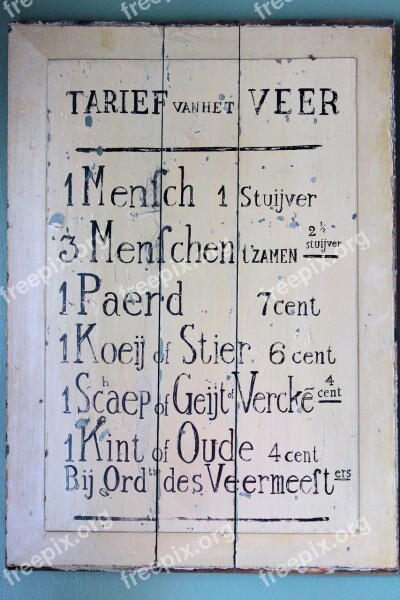 TARIEF VAN HET VEER
1 Menſch 1 Stuijver
3 Menſchen t'ZAMEN 2½ stuijver
1 Paerd 7 cent
1 Koeij of Stier 6 cent
1 Schaep of Geijt of Verckē 4 cent
1 Kint of Oude 4 cent
Bij Ord^tie des Veermeeſt^ers